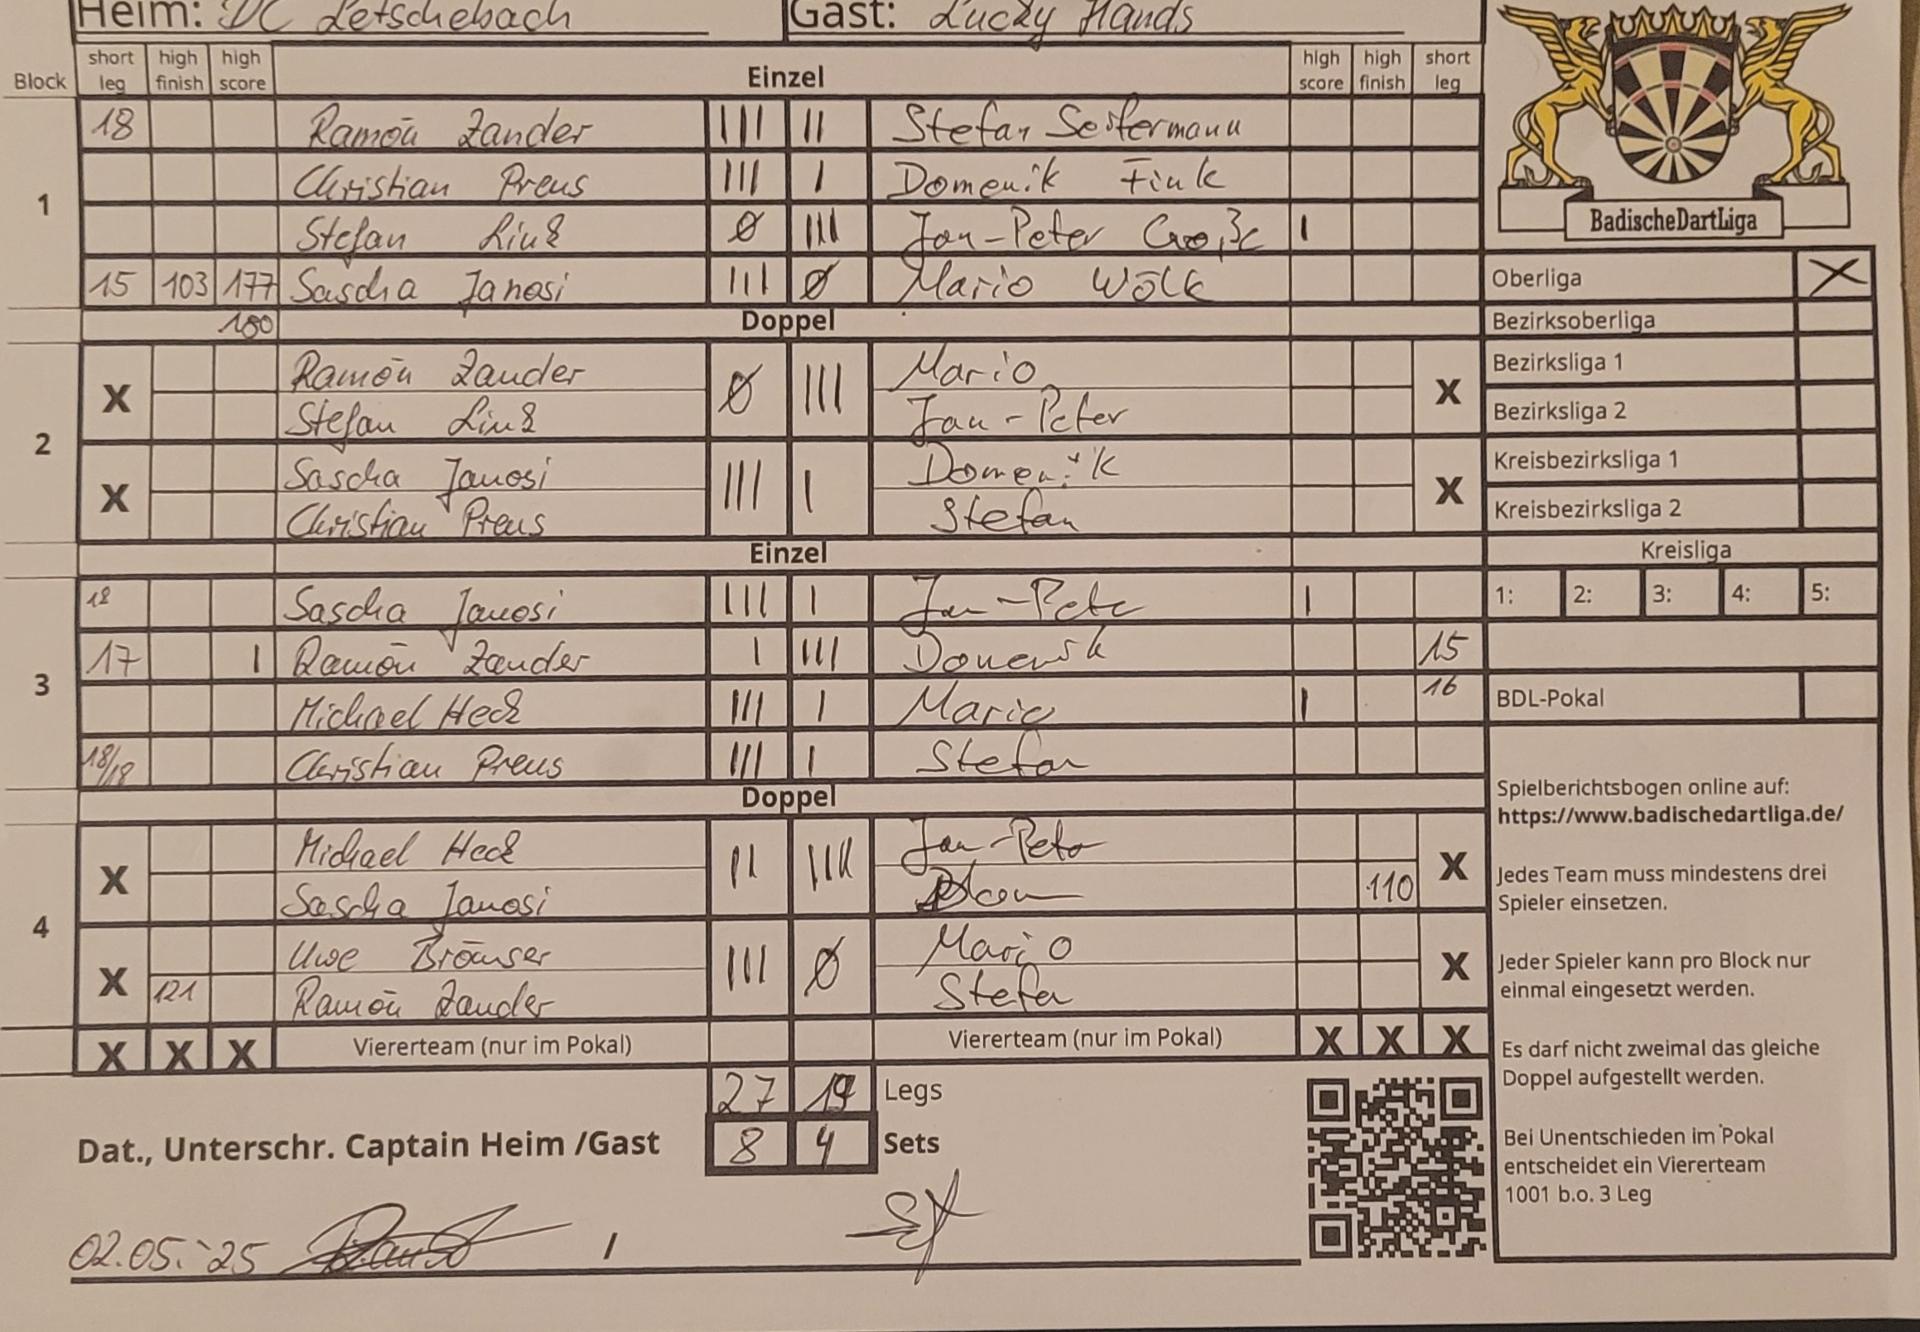 Heim: DC Letschebach Gast: Lucky Hands
Block short leg high finish high score Einzel high score high finish short leg
1
18 Ramön Zander III II Stefan Seifermann
Christian Preus III I Domenik Fink
Stefan Link Ø III Jan-Peter I
15 103 177 Sascha Janosi III Ø Mario Wölk
180 Doppel
2
X Ramön Zander Ø III Mario X
Stefan Link Jan-Peter
X Sascha Janosi III I Domenik X
Christian Preus Stefan
Einzel
3
18 Sascha Janosi III I Jan-Peter I
17 I Ramön Zander I III Domenik 15
Michael Heck III I Mario I 16
18/18 Christian Preus III I Stefan
Doppel
4
X Michael Heck II III Jan-Peter X
Sascha Janosi 110
X Uwe III Ø Mario X
121 Ramön Zander Stefan
X X X Viererteam (nur im Pokal) Viererteam (nur im Pokal) X X X
27 Legs
Dat., Unterschr. Captain Heim /Gast 8 4 Sets
02.05.'25 /
BadischeDartLiga
Oberliga X
Bezirksoberliga
Bezirksliga 1
Bezirksliga 2
Kreisbezirksliga 1
Kreisbezirksliga 2
Kreisliga
1: 2: 3: 4: 5:
BDL-Pokal
Spielberichtsbogen online auf:
https://www.badischedartliga.de/
Jedes Team muss mindestens drei
Spieler einsetzen.
Jeder Spieler kann pro Block nur
einmal eingesetzt werden.
Es darf nicht zweimal das gleiche
Doppel aufgestellt werden.
Bei Unentschieden im Pokal
entscheidet ein Viererteam
1001 b.o. 3 Leg